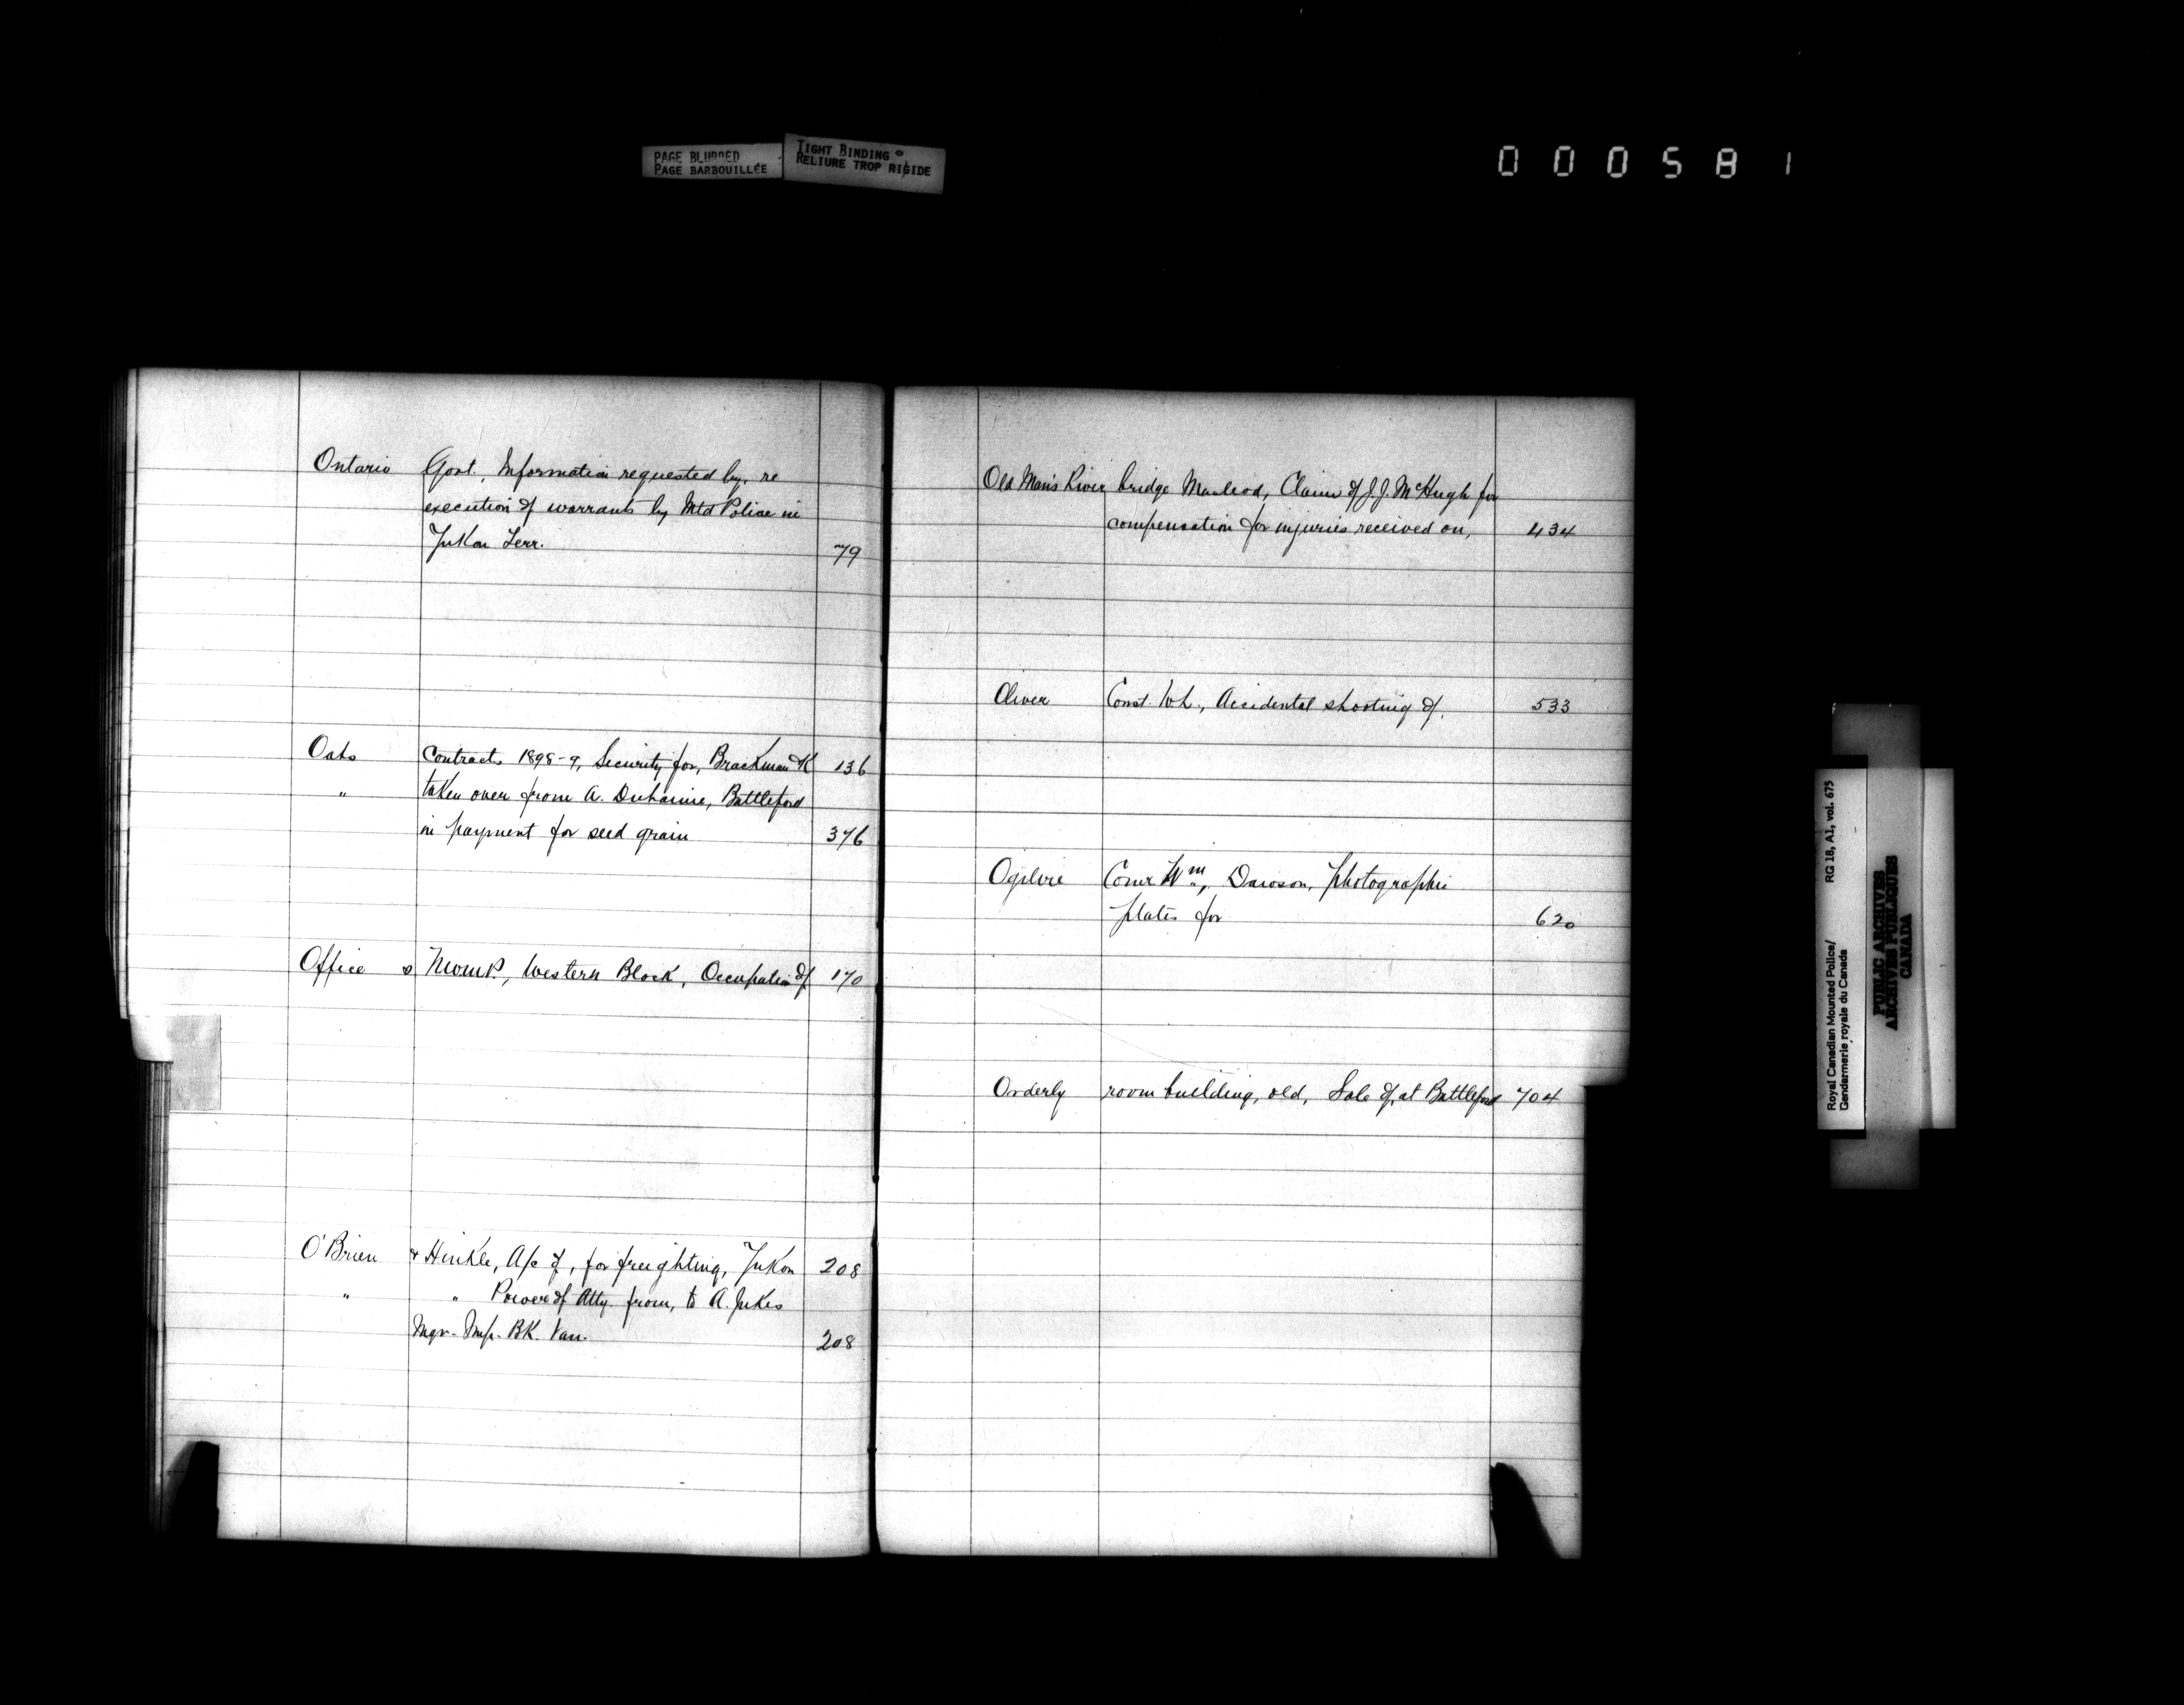 PAGE BLURRED
PAGE BARBOUILLÉE
TIGHT BINDING
RELIURE TROP RIGIDE
000581
Ontario Govt. Information requested by, re
execution of warrants by Mtd Police in
Yukon Terr. 79
Oats Contracts 1898-9, Security for, Brackman & K 136
" taken over from A. Duhaime, Battleford
in payment for seed grain 376
Office s NWMP., Western Block, Occupation of 170
O'Brien & Hinkle, A/c of, for freighting, Yukon 208
" " Power of Atty. from, to A. Jukes
Mgr. Imp. BK. Van. 208
Old Man's River bridge Macleod, Claim of J.J. McHugh for
compensation for injuries received on, 434
Oliver Const. , Accidental shooting of. 533
Ogilvie Comr Wm, Dawson, Photographic
plates for 620
Orderly room building, old, Sale of, at Battleford 704
Royal Canadian Mounted Police/
Gendarmerie royale du Canada
RG 18, A1, vol. 675
PUBLIC ARCHIVES
ARCHIVES PUBLIQUES
CANADA